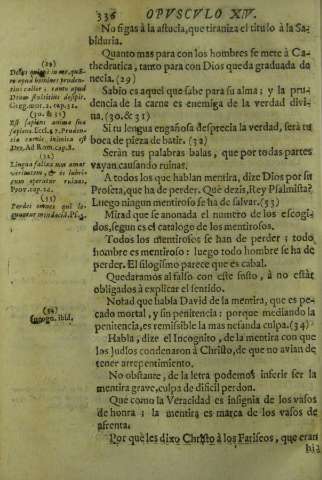 336 OPUSCULO XIV.
No sigas à la astucia, que tiraniza el titulo à la Sa-
biduria.
Quanto mas para con los hombres se mete à Ca-
thedratica, tanto para con Dios queda graduada de
necia. (29)
Sabio es aquel que sabe para su alma: y la pru-
dencia de la carne es enemiga de la verdad divi-
na. (30. & 31)
Si tu lengua engañosa desprecia la verdad, serà tu
boca de pieza de batir. (32)
Seràn tus palabras balas, que por todas partes
vayan causando ruinas.
A todos los que hablan mentira, dize Dios por su
Profeta, que ha de perder. Què dezis, Rey Psalmista?
Luego ningun mentiroso se ha de salvar. (33)
Mirad que se anonada el numero de los escogi-
dos, segun es el catalogo de los mentirosos.
Todos los mentirosos se han de perder; todo
hombre es mentiroso: luego todo hombre se ha de
perder. El silogismo parece que es cabal.
Quedaramos al falso con este susto, à no estàr
obligados à explicar el sentido.
Notad que habla David de la mentira, que es pe-
cado mortal, y sin penitencia: porque mediando la
penitencia, es remissible la mas nefanda culpa. (34)
Habla, dize el Incognito, de la mentira con que
los Judios condenaron à Christo, de que no avian de
tener arrepentimiento.
No obstante, de la letra podemos inferir ser la
mentira grave, culpa de dificil perdon.
Que como la Veracidad es insignia de los vasos
de honra; la mentira es marca de los vasos de
afrenta.
Por què les dixo Christo à los Fariseos, que eran
hi-
(29)
(30. & 31)
Es sapiens anima sua
sapiens. Eccli.
Dei. Ad Rom. cap. 8.
(32)
Lingua fallax non amat
veritatem, & os lubri-
cum operatur ruinas.
Prov. cap. 26.
(33)
Perdes omnes qui lo-
quuntur mendacium. Ps. 5.
(34)
Incogn. ibid.